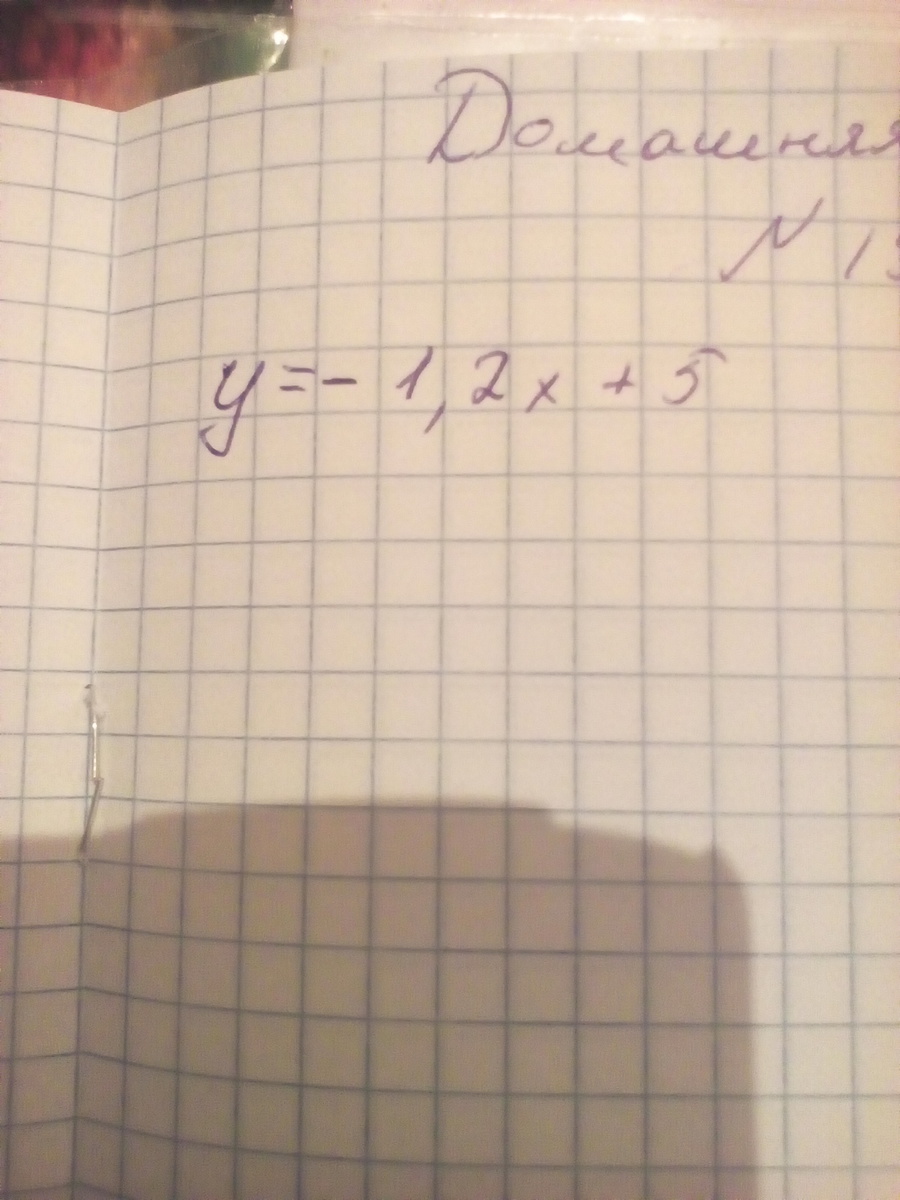 Домашняя
N 1
y = - 1,2x + 5